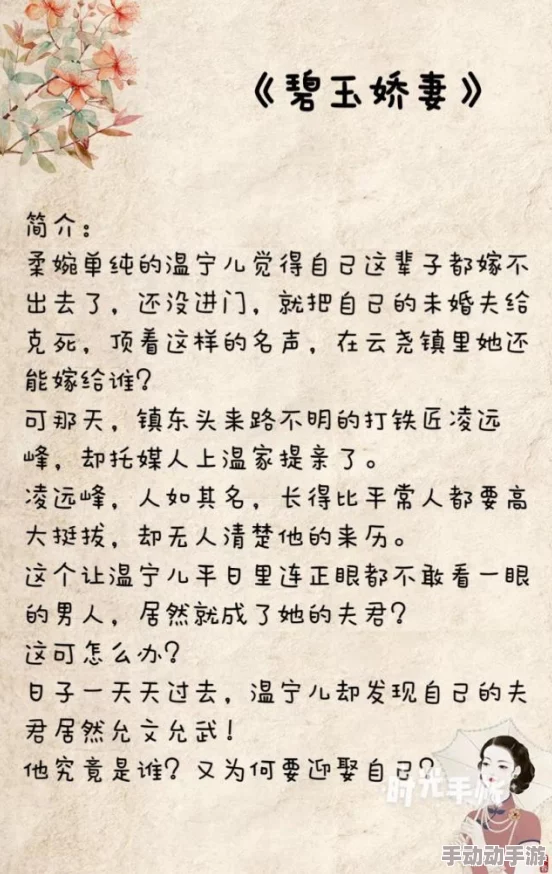 《碧玉娇妻》
简介：
柔婉单纯的温宁儿觉得自己这辈子都嫁不
出去了，还没进门，就把自己的未婚夫给
克死，顶着这样的名声，在云尧镇里她还
能嫁给谁？
可那天，镇东头来路不明的打铁匠凌远
峰，却托媒人上温家提亲了。
凌远峰，人如其名，长得比平常人都要高
大挺拔，却无人清楚他的来历。
这个让温宁儿平日里连正眼都不敢看一眼
的男人，居然就成了她的夫君？
这可怎么办？
日子一天天过去，温宁儿却发现自己的夫
君居然允文允武！
他究竟是谁？又为何要迎娶自己？
时光手
手动动手游